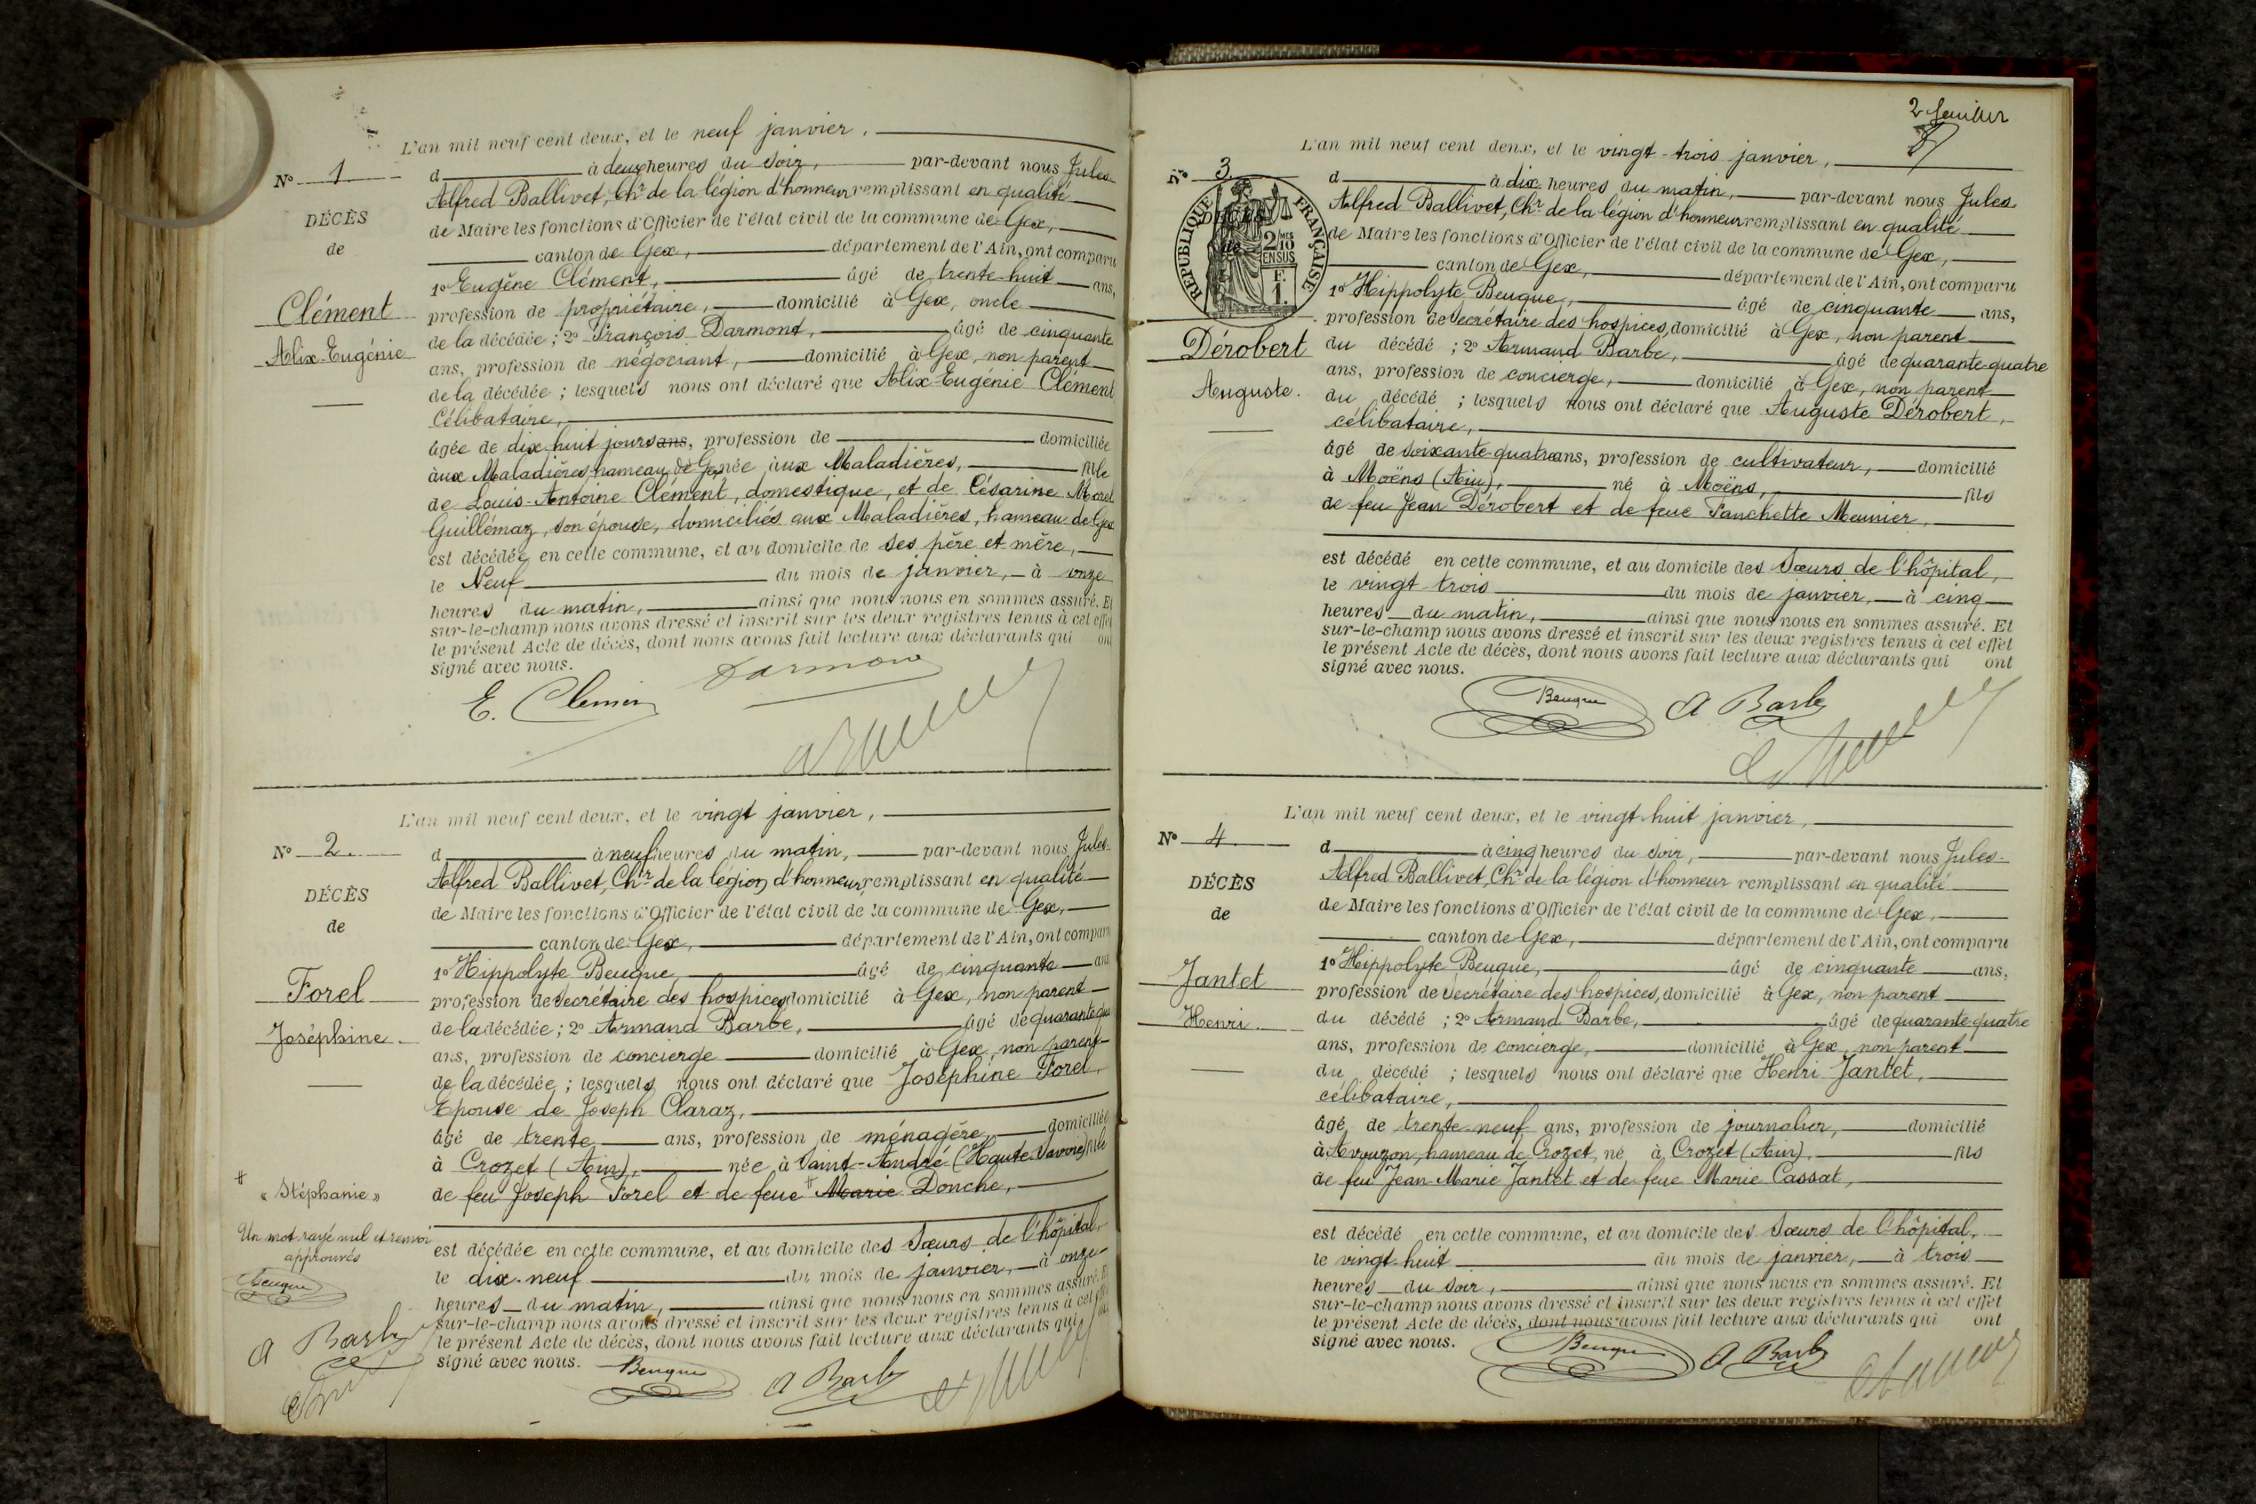 L'an mil neuf cent deux, et le neuf janvier,
N° 1
d à deux heures du soir, par-devant nous Jules
Alfred Ballivet, Chr de la légion d'honneur remplissant en qualité
DÉCÈS
de Maire les fonctions d'Officier de l'état civil de la commune de Gex,
de
canton de Gex, département de l'Ain, ont comparu
1° Eugène Clément, âgé de trente-huit ans,
Clément
profession de propriétaire, domicilié à Gex, oncle
de la décédée ; 2° François Darmont, âgé de cinquante
Alix-Eugénie
ans, profession de négociant, domicilié à Gex, non parent
de la décédée ; lesquels nous ont déclaré que Alix-Eugénie Clément
Célibataire,
âgée de dix huit jours ans, profession de domiciliée
aux Maladières hameau de Gex née aux Maladières, fille
de Louis-Antoine Clément, domestique, et de Césarine Morel
Guillémaz, son épouse, domiciliés aux Maladières, hameau de Gex
est décédée en cette commune, et au domicile de ses père et mère,
le Neuf du mois de janvier, à onze
heures du matin, ainsi que nous nous en sommes assuré. Et
sur-le-champ nous avons dressé et inscrit sur les deux registres tenus à cet effet
le présent Acte de décès, dont nous avons fait lecture aux déclarants qui ont
signé avec nous.
E. Clemen Darmon
L'an mil neuf cent deux, et le vingt janvier,
N° 2.
d à neuf heures du matin, par-devant nous Jules
Alfred Ballivet, Chr de la légion d'honneur, remplissant en qualité
DÉCÈS
de Maire les fonctions d'Officier de l'état civil de la commune de Gex,
de
canton de Gex, département de l'Ain, ont comparu
1° Hippolyte Beugue, âgé de cinquante ans
Forel
profession de secrétaire des hospices, domicilié à Gex, non parent
Joséphine.
de la décédée ; 2° Armand Barbe, âgé de quarante-qua
ans, profession de concierge domicilié à Gex, non parent
de la décédée ; lesquels nous ont déclaré que Joséphine Forel,
Epouse de Joseph Claraz,
âgé de trente ans, profession de ménagère, domiciliée
à Crozet (Ain), née à Saint-André (Haute Savoie) fille
# « Stéphanie »
de feu Joseph Forel et de feue # Marie Donche,
Un mot rayé nul et renvoi
approuvés
est décédée en cette commune, et au domicile des Sœurs de l'hôpital,
le dix-neuf du mois de janvier, à onze
Beugue
heures du matin, ainsi que nous nous en sommes assuré. Et
sur-le-champ nous avons dressé et inscrit sur les deux registres tenus à cet effet
A Barbe
le présent Acte de décès, dont nous avons fait lecture aux déclarants qui ont
signé avec nous.
Beugue A Barbe
2 feuillet
L'an mil neuf cent deux, et le vingt-trois janvier,
N° 3
d à dix heures du matin, par-devant nous Jules
Alfred Ballivet, Chr de la légion d'honneur remplissant en qualité
DÉCÈS
de Maire les fonctions d'Officier de l'état civil de la commune de Gex,
de
RÉPUBLIQUE FRANÇAISE
2/10 MES
EN SUS
F.
1.
canton de Gex, département de l'Ain, ont comparu
1° Hippolyte Beugue, âgé de cinquante ans,
profession de secrétaire des hospices, domicilié à Gex, non parent
Dérobert
du décédé ; 2° Armand Barbe, âgé de quarante-quatre
ans, profession de concierge, domicilié à Gex, non parent
Auguste.
du décédé ; lesquels nous ont déclaré que Auguste Dérobert,
célibataire,
âgé de soixante-quatre ans, profession de cultivateur, domicilié
à Moëns (Ain), né à Moëns, fils
de feu Jean Dérobert et de feue Fanchette Meunier,
est décédé en cette commune, et au domicile des Sœurs de l'hôpital,
le vingt trois du mois de janvier, à cinq
heures du matin, ainsi que nous nous en sommes assuré. Et
sur-le-champ nous avons dressé et inscrit sur les deux registres tenus à cet effet
le présent Acte de décès, dont nous avons fait lecture aux déclarants qui ont
signé avec nous.
Beugue A Barbe
L'an mil neuf cent deux, et le vingt-huit janvier,
N° 4
d à cinq heures du soir, par-devant nous Jules
Alfred Ballivet, Chr de la légion d'honneur remplissant en qualité
DÉCÈS
de Maire les fonctions d'Officier de l'état civil de la commune de Gex,
de
canton de Gex, département de l'Ain, ont comparu
1° Hippolyte Beugue, âgé de cinquante ans,
Jantet
profession de secrétaire des hospices, domicilié à Gex, non parent
Henri.
du décédé ; 2° Armand Barbe, âgé de quarante-quatre
ans, profession de concierge, domicilié à Gex, non parent
du décédé ; lesquels nous ont déclaré que Henri Jantet,
célibataire,
âgé de trente-neuf ans, profession de journalier, domicilié
à Avouzon, hameau de Crozet, né à Crozet (Ain), fils
de feu Jean-Marie Jantet et de feue Marie Cassat,
est décédé en cette commune, et au domicile des Sœurs de l'hôpital,
le vingt-huit du mois de janvier, à trois
heures du soir, ainsi que nous nous en sommes assuré. Et
sur-le-champ nous avons dressé et inscrit sur les deux registres tenus à cet effet
le présent Acte de décès, dont nous avons fait lecture aux déclarants qui ont
signé avec nous.
Beugue A Barbe